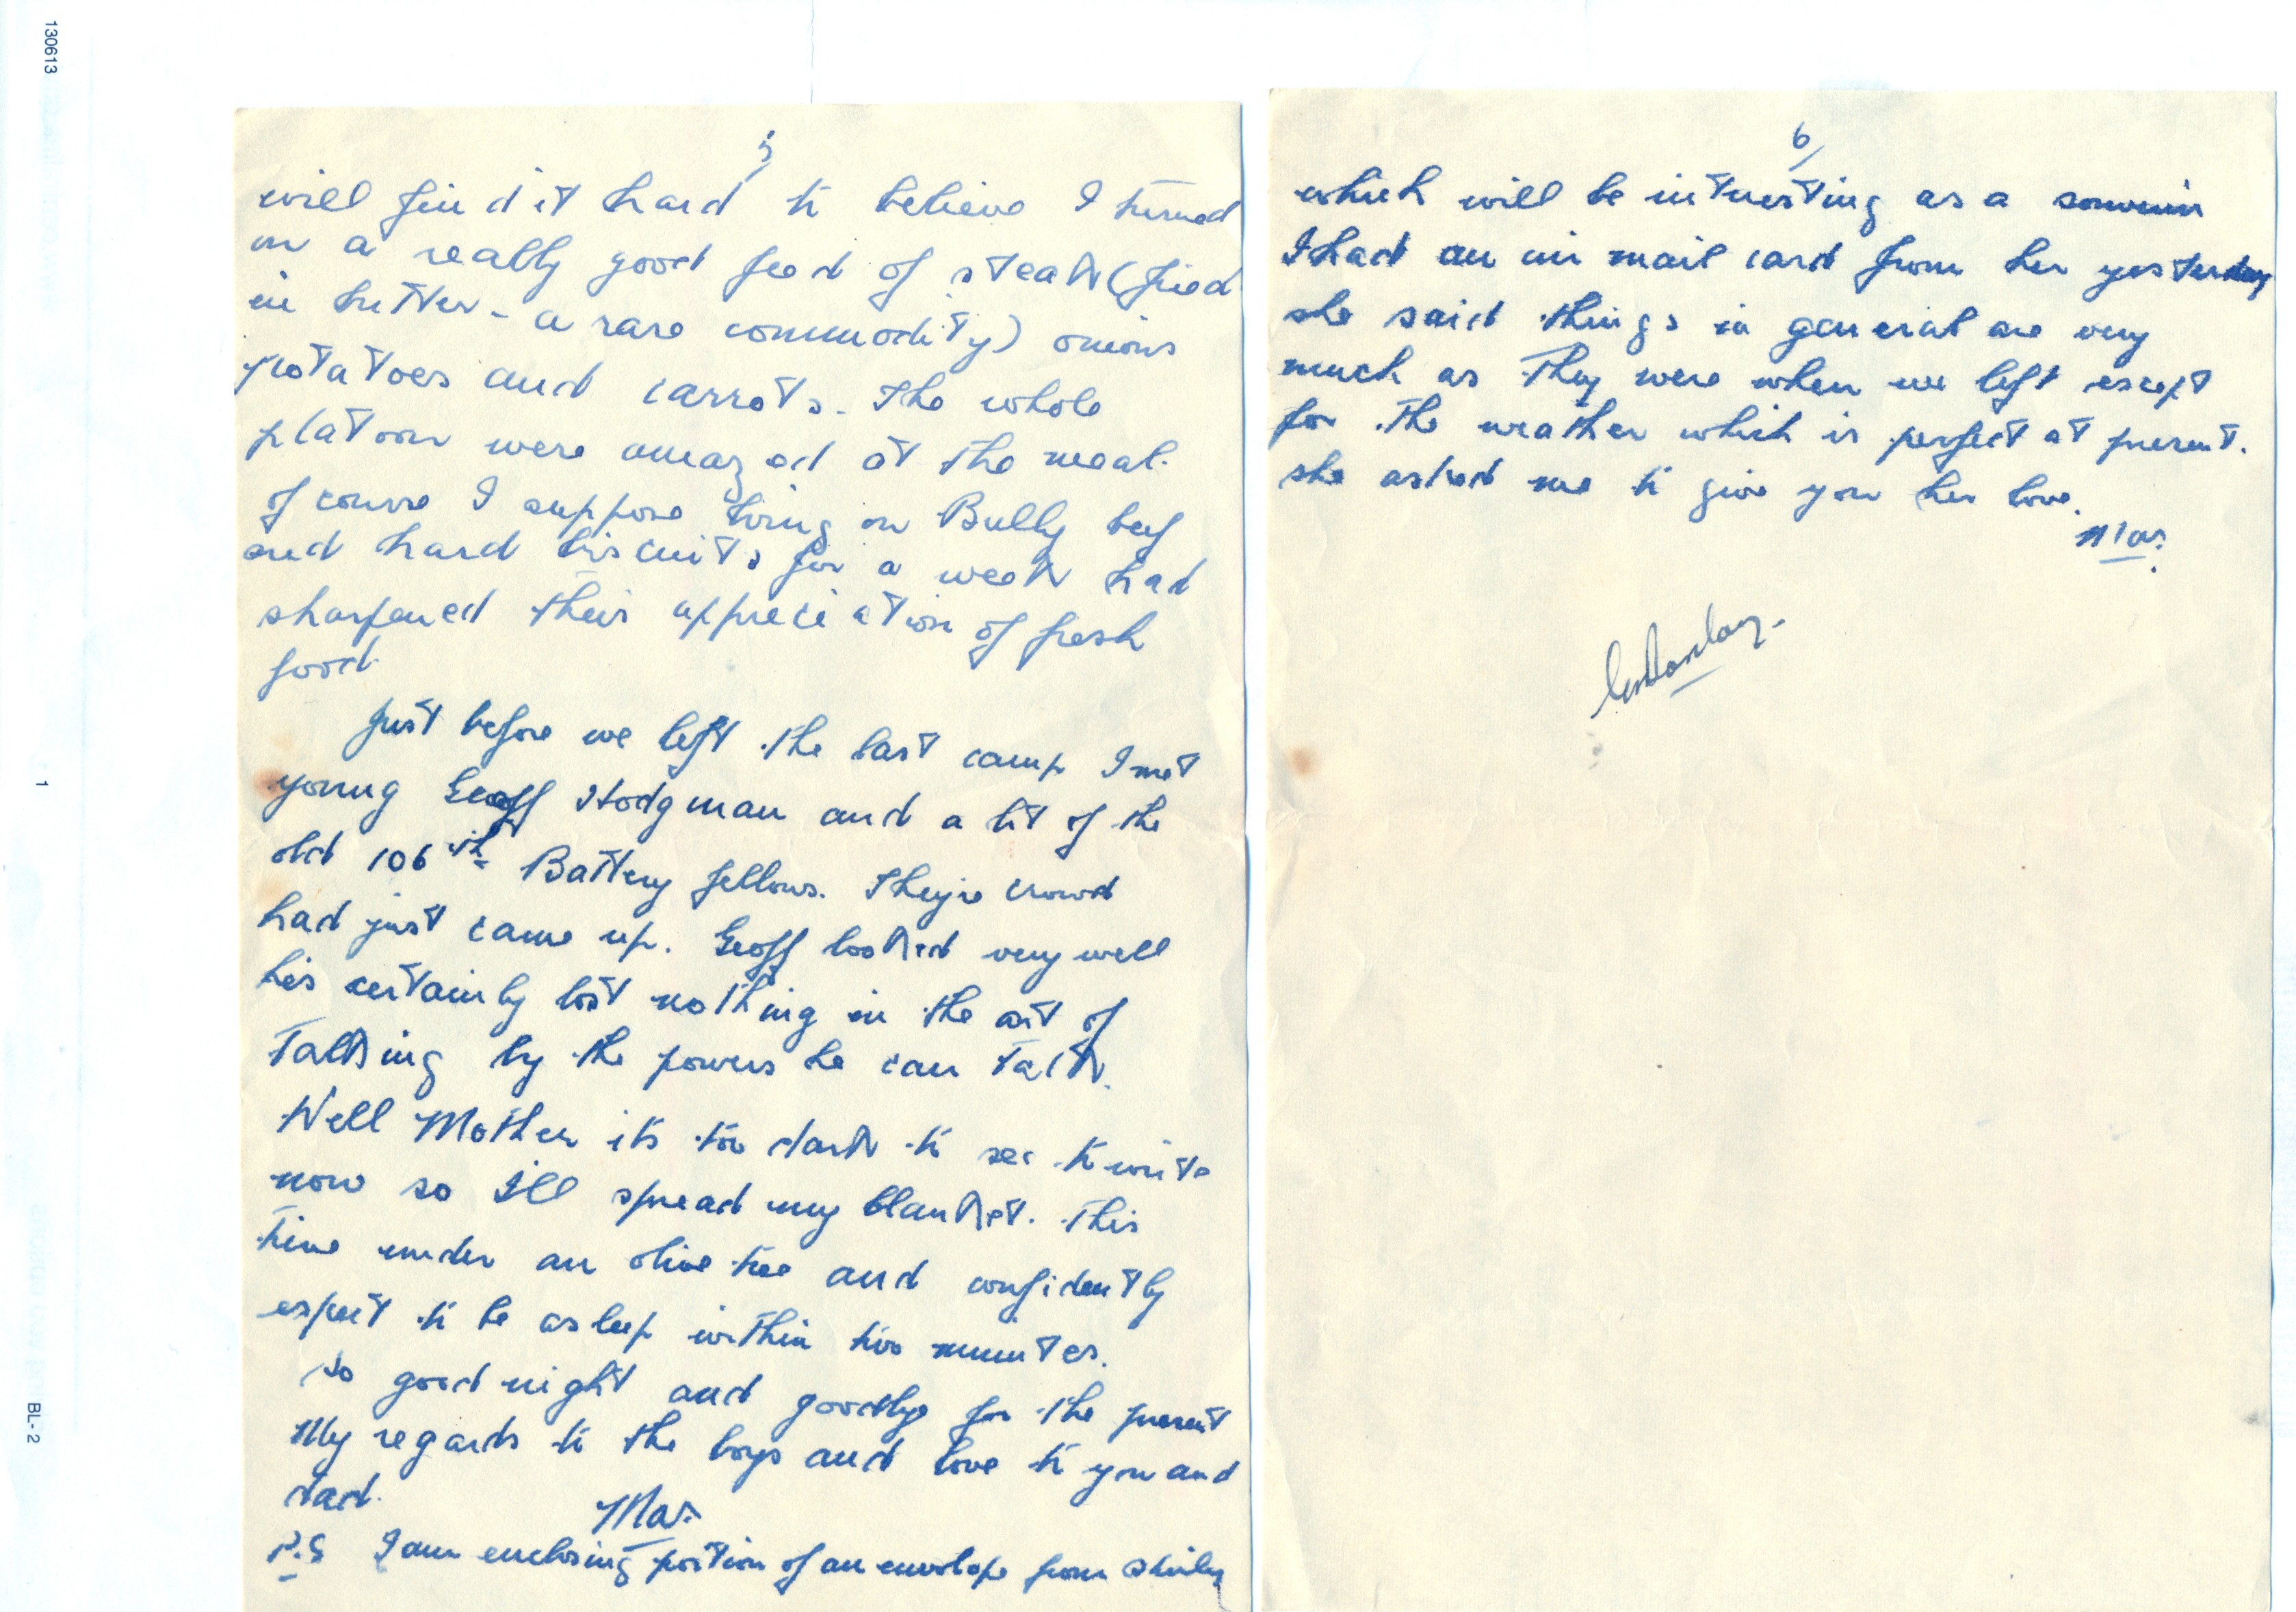 130613
1
BL-2
5/
will find it hard to believe I turned
on a really good feed of steak (fried
in butter - a rare commodity) onions
potatoes and carrots. The whole
platoon were amazed at the meal.
Of course I suppose living on Bully beef
and hard biscuits for a week had
sharpened their appreciation of fresh
food.
Just before we left the last camp I met
young Geoff Hodgman and a lot of the
old 106th Battery fellows. They're crowd
had just came up. Geoff looked very well
he's certainly lost nothing in the art of
talking by the powers he can talk.
Well Mother its too dark to see to write
now so I'll spread my blanket. This
time under an olive tree and confidently
expect to be asleep within two minutes.
So good night and goodbye for the present
My regards to the boys and love to you and
dad.
Mas.
P.S I am enclosing portion of an envelope from Shirley
6/
which will be interesting as a souvenir
I had an air mail card from her yesterday
she said things in general are very
much as they were when we left except
for the weather which is perfect at present.
she asked me to give you her love.
Mas.